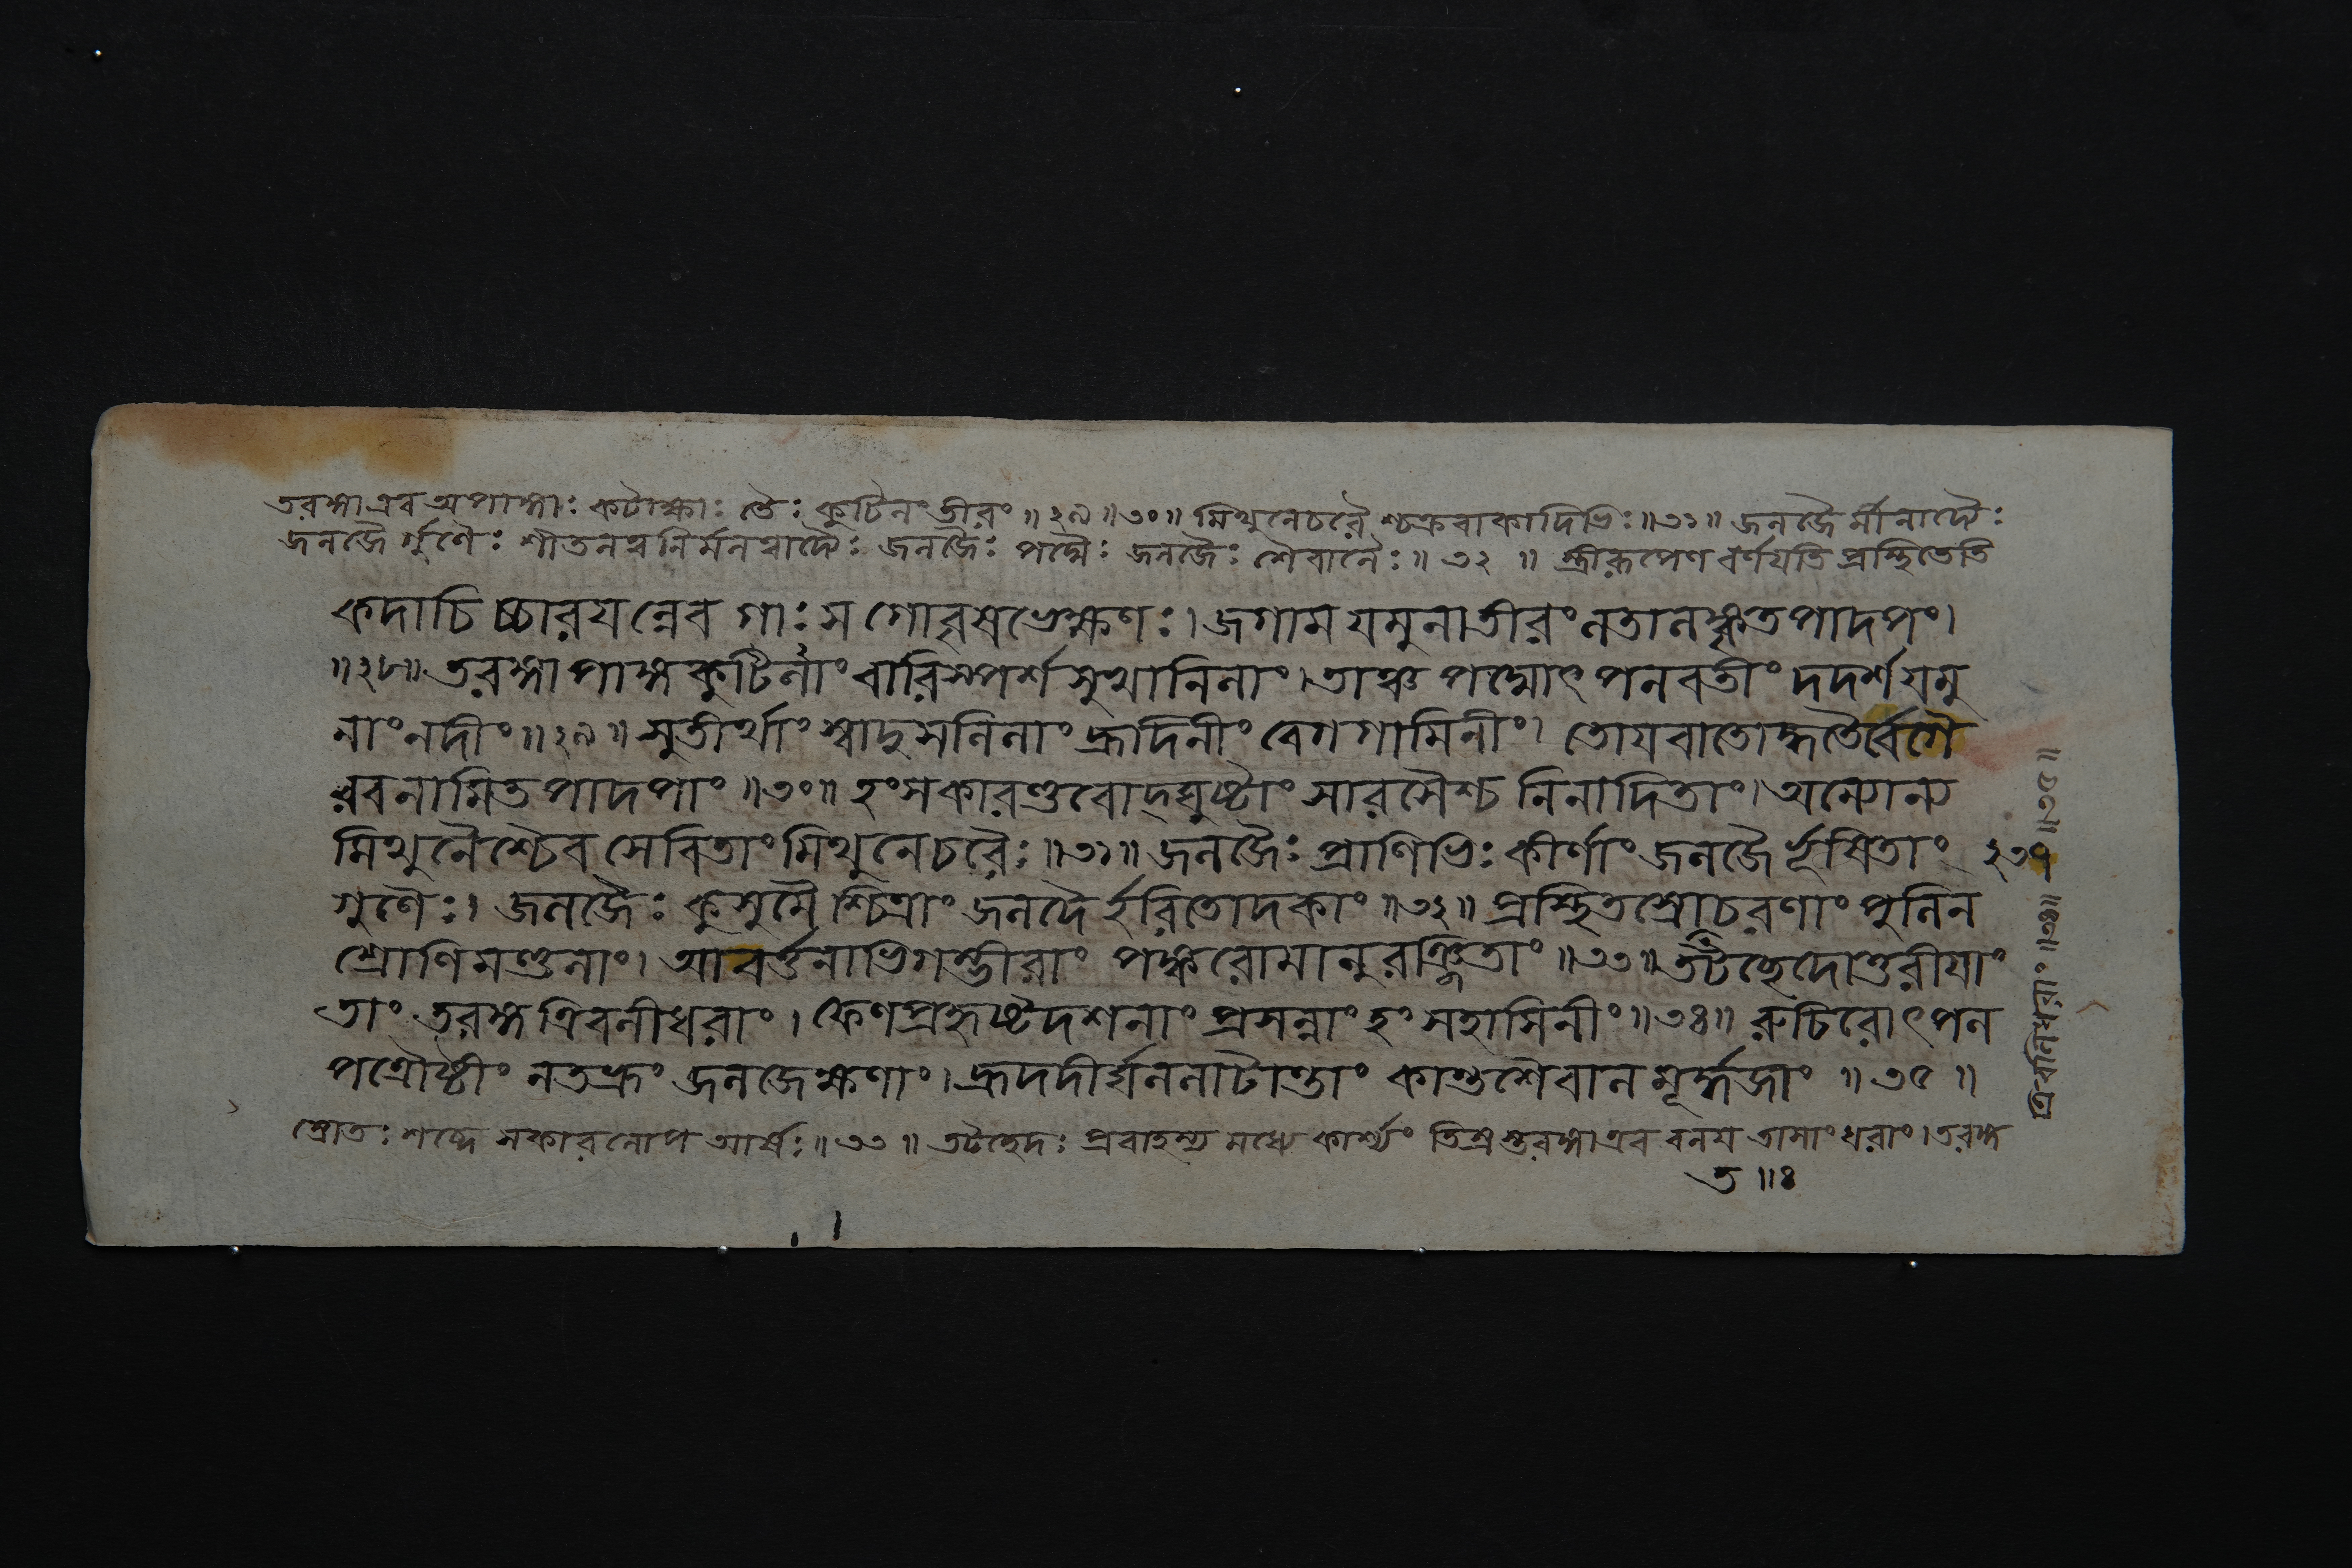 তরঙ্গা এব অপাঙ্গাঃ কটাক্ষাঃ তৈঃ কুটিলং তীরং ॥ ২৯ ॥ ৩০ ॥ মিথুনেচরৈশ্চক্রবাকাদিভিঃ ॥ ৩১ ॥ জলজৈর্মীনাদ্যৈঃ
জলজৈর্গুণৈঃ শীতলত্বনির্মলত্বাদ্যৈঃ জলজৈঃ পদ্মৈঃ জলজৈঃ শৈবালৈঃ ॥ ৩২ ॥ স্ত্রীরূপেণ বর্ণয়তি প্রস্থিতেতি
কদাচিচ্চারযন্নেব গাঃ স গোবৃষভেক্ষণঃ। জগাম যমুনাতীরং লতালঙ্কৃতপাদপং।
॥ ২৮ ॥ তরঙ্গাপাঙ্গকুটিলাং বারিস্পর্শসুখানিলাং। তাঞ্চ পদ্মোৎপলবতীং দদর্শ যমু
নাং নদীং ॥ ২৯ ॥ সুতীর্থাং স্বাদুসলিলাং হ্রাদিনীং বেগগামিনীং। তোযবাতোদ্ধতৈর্বেগৈ
রবনামিতপাদপাং ॥ ৩০ ॥ হংসকারণ্ডবোদ্ঘুষ্টাং সারসৈশ্চ নিনাদিতাং। অন্যোন্য
মিথুনৈশ্চৈব সেবিতাং মিথুনেচরৈঃ ॥ ৩১ ॥ জলজৈঃ প্রাণিভিঃ কীর্ণাং জলজৈর্ভূষিতাং ২৩৭
গুণৈঃ। জলজৈঃ কুসুমৈশ্চিত্রাং জলজৈর্হরিতোদকাং ॥ ৩২ ॥ প্রস্থিতস্রোচরণাং পুলিন
শ্রোণিমণ্ডলাং। আবর্ত্তনাভিগম্ভীরাং পঙ্করোমানুরঞ্জিতাং ॥ ৩৩ ॥ তটচ্ছেদোত্তরীযাং
তাং তরঙ্গত্রিবলীধরাং। ফেণপ্রহৃষ্টদশনাং প্রসন্নাং হংসহাসিনীং ॥ ৩৪ ॥ রুচিরোৎপল
পত্রৌষ্ঠীং নতভ্রূং জলজেক্ষণাং। হ্রদদীর্ঘললাটান্তাং কান্তশৈবালমূর্দ্ধজাং ॥ ৩৫ ॥
স্রোতঃ শব্দে সকারলোপ আর্ষঃ ॥ ৩৩ ॥ তটচ্ছেদঃ প্রবাহস্য মধ্যে কার্শ্যং তিস্রস্তরঙ্গা এব বলয তাসাং ধরাং। তরঙ্গ
ত ॥ ৪